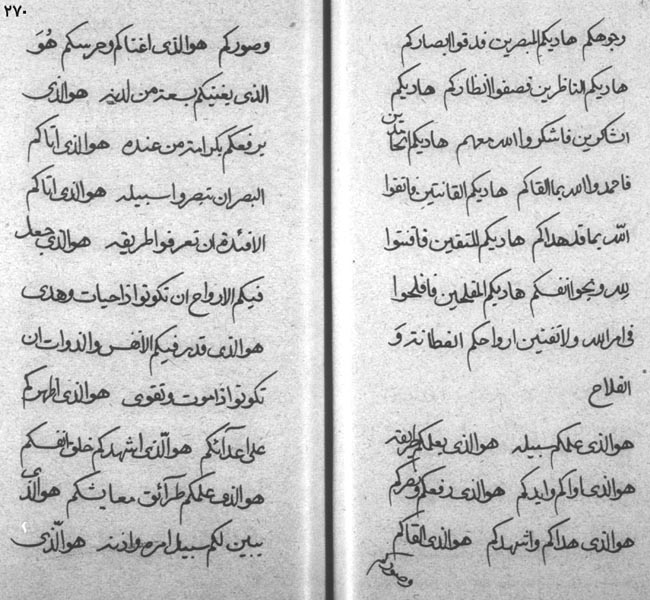 وجوهكم هاديكم المبصرين فدقوا ابصاركم
هاديكم الناظرين فصفوا انظاركم هاديكم
الشاكرين فاشكروا الله معهم هاديكم الحامدين
فاحمدوا الله بما القاكم هاديكم القانتين فاتقوا
الله بما قد هداكم هاديكم للمتقين فاقنتوا
لله ونجوا انفسكم هاديكم المفلحين فافلحوا
فى امر الله ولا تفتين ارواحكم الفطانة و
الفلاح
هو الذى علمكم سبيله هو الذى يعلمكم طريقه
هو الذى اواكم وايدكم هو الذى رفعكم ونصركم
هو الذى هداكم واشهدكم هو الذى القاكم
وصوركم
٢٧٠
وصوركم هو الذى اغناكم وحرسكم هو
الذى يغنيكم بسعة من لدنه هو الذى
يرفعكم بكرامة من عنده هو الذى اتاكم
البصر ان تبصروا سبيله هو الذى اتاكم
الافئدة ان تعرفوا طريقه هو الذى جعل
فيكم الارواح ان تكونوا ذا حيات وهدى
هو الذى قدر فيكم الانفس والذوات ان
تكونوا ذا موت وتقوى هو الذى اظهركم
على اعدائكم هو الذى اشهدكم خلق انفسكم
هو الذى علمكم طرآئق معايشكم هو الذى
يبين لكم سبيل امره واذنه هو الذى